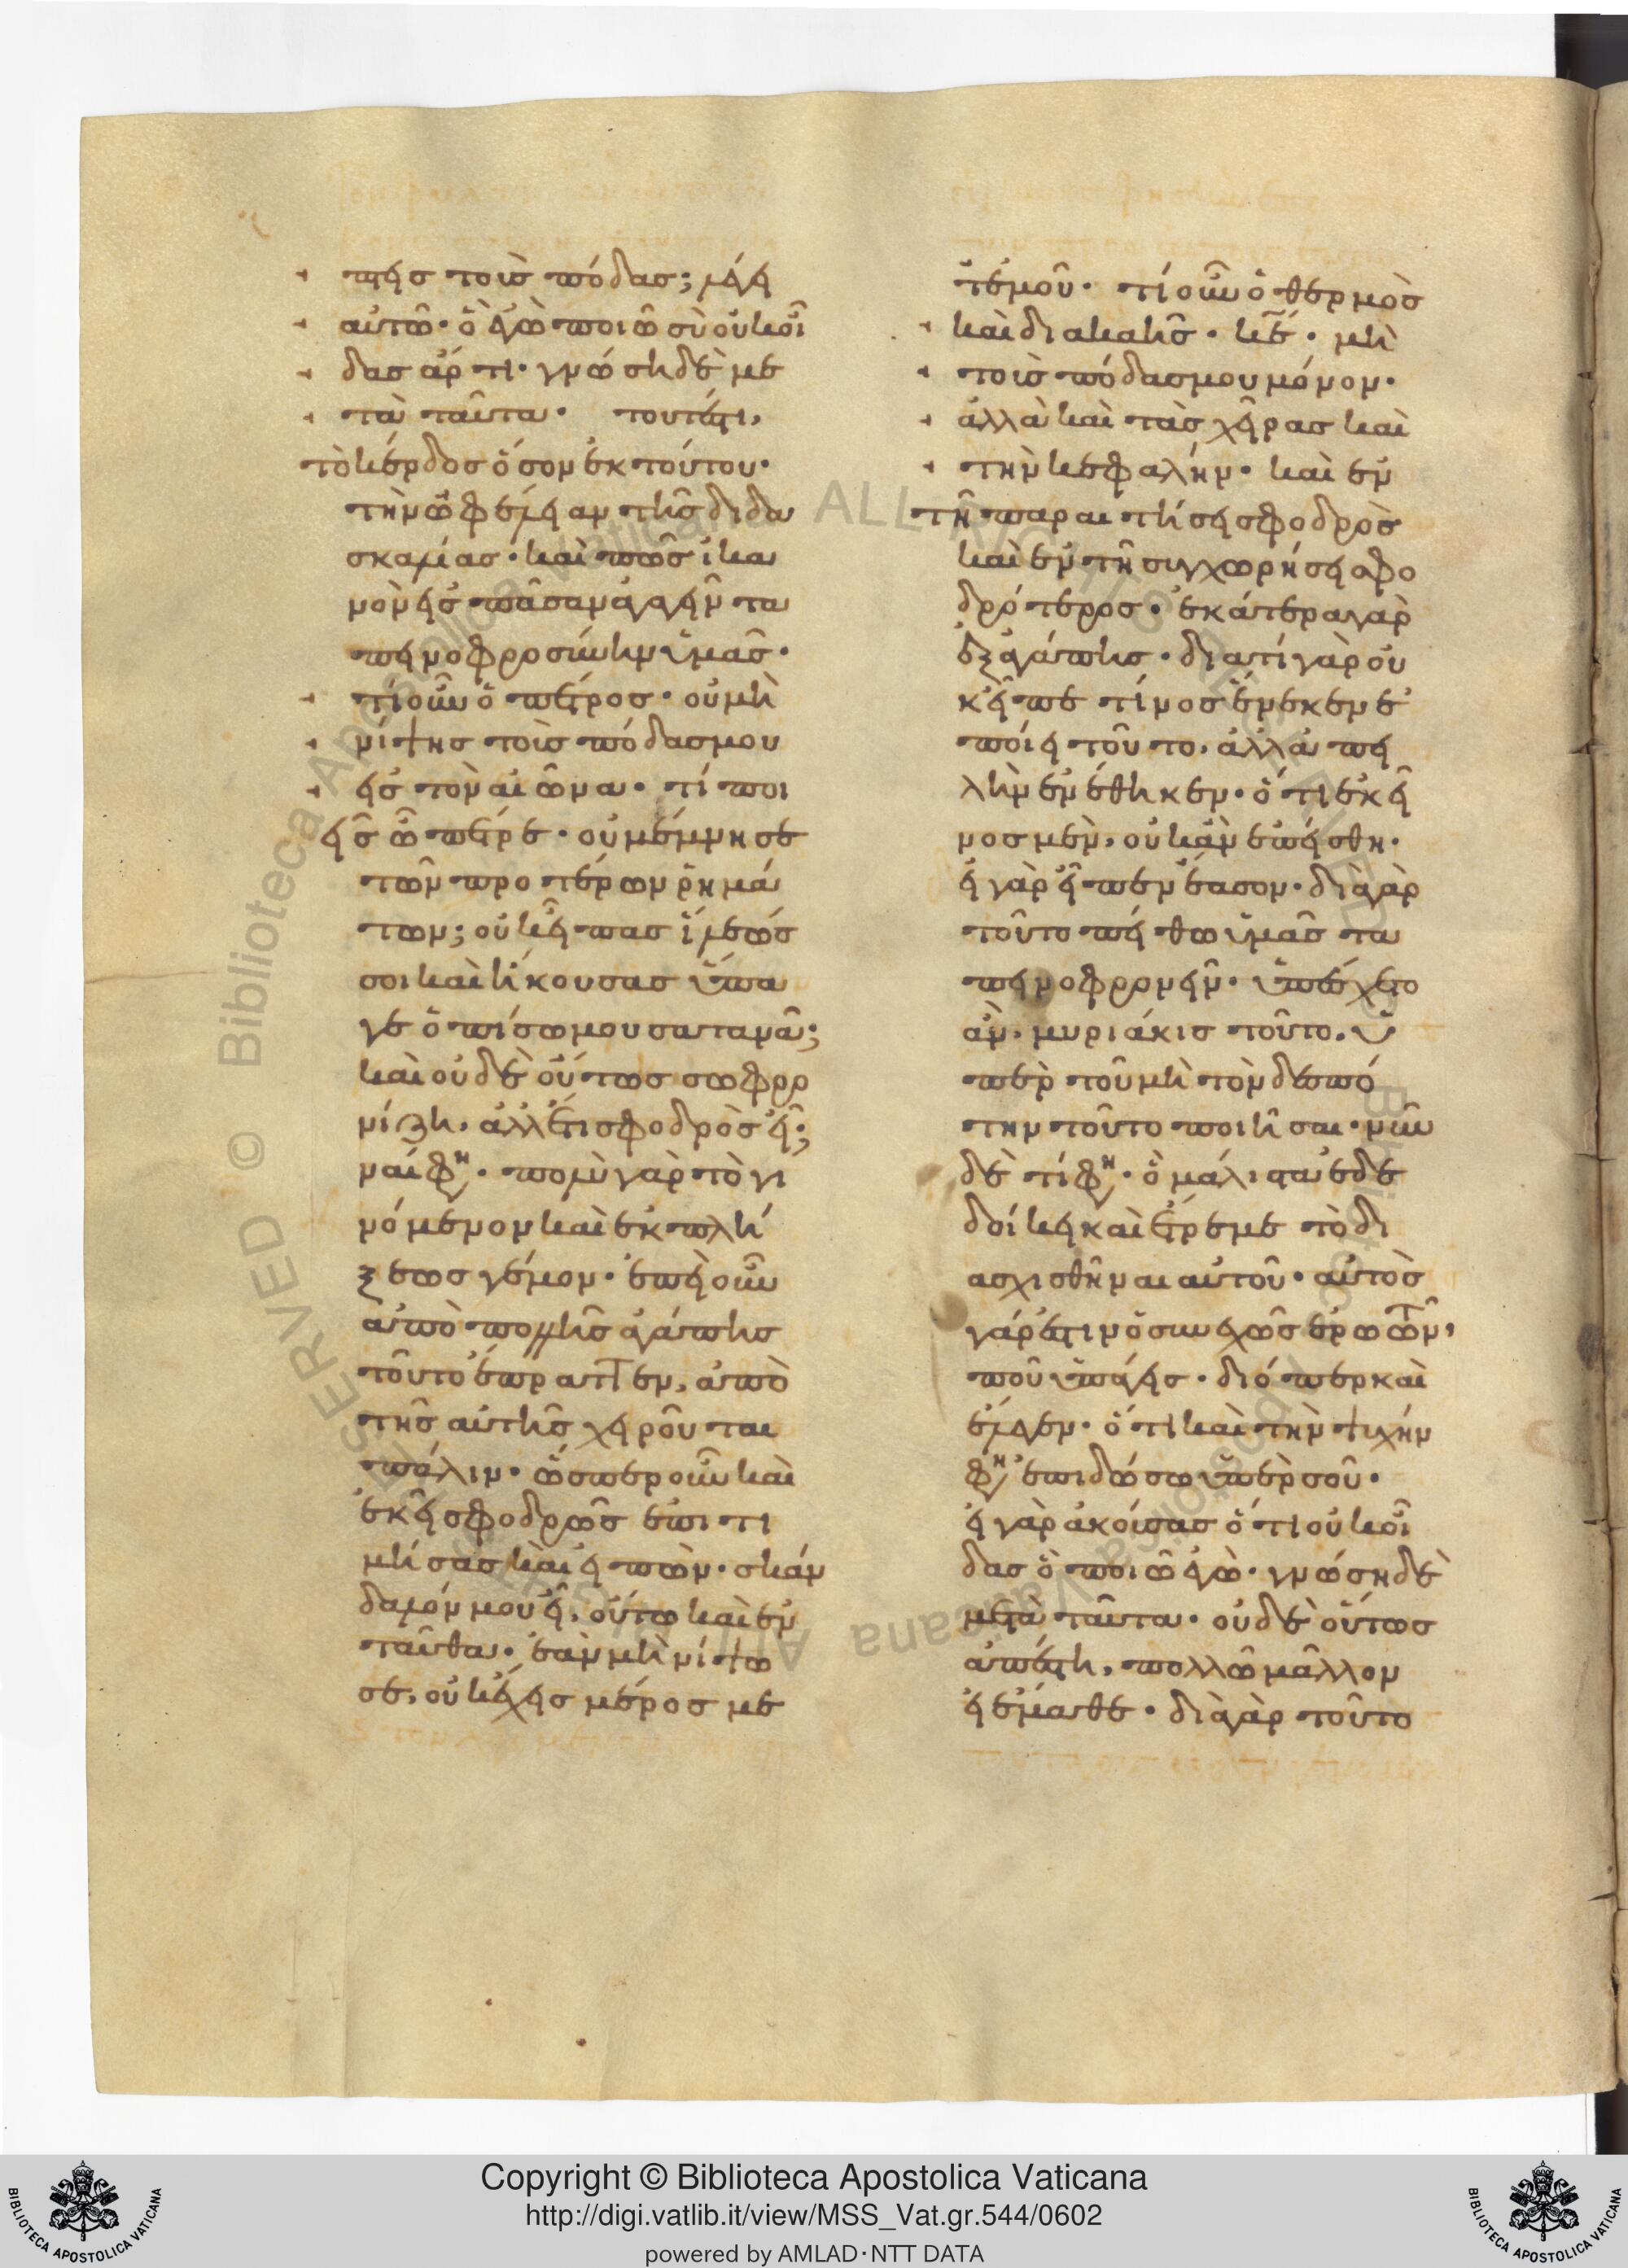 πτεις τοὺς πόδας; λέγει
αὐτῶ· ὃ ἐγὼ ποιῶ σὺ οὐκ οἶ
δας ἄρτι· γνώση δὲ με
τὰ ταῦτα· τουτέστι,
τὸ κέρδος ὅσον ἐκ τούτου·
τὴν ὠφέλειαν τῆς διδα
σκαλίας· καὶ πῶς ἱκα
νὸν εἰς πᾶσαν ἀγαγεῖν τα
πεινοφροσύνην ὑμᾶς·
τί οὖν ὁ πέτρος· οὐ μὴ
νίψης τοὺς πόδας μου
εἰς τὸν αἰῶνα· τί ποι
εῖς ὦ πέτρε· οὐ μέμνησε
τῶν προτέρων ῥημά
των; οὐκ εἶπας ἵλεώς
σοι καὶ ἤκουσας ὕπα
γε ὀπίσω μου σατανᾶ;
καὶ οὐδὲ οὕτως σωφρο
νίζη, ἀλλ' ἔτι σφοδρὸς εἶ;
ναί φη· πολὺ γὰρ τὸ γι
νόμενον καὶ ἐκπλή
ξεως γέμον· ἐπεὶ οὖν
ἀπὸ πολλῆς ἀγάπης
τοῦτο ἔπραττεν, ἀπὸ
τῆς αὐτῆς χειροῦται
πάλιν· ὥσπερ οὖν καὶ
ἐκεῖ σφοδρῶς ἐπιτι
μήσας καὶ εἰπὼν· σκάν
δαλόν μου εἶ, οὕτω καὶ ἐν
ταῦθα· ἐὰν μὴ νίψω
σε, οὐκ ἔχεις μέρος με
τ' ἐμοῦ· τί οὖν ὁ θερμὸς
καὶ διακαὴς· κε· μὴ
τοὺς πόδας μου μόνον·
ἀλλὰ καὶ τὰς χεῖρας καὶ
τὴν κεφαλήν· καὶ ἐν
τῆ παραιτήσει σφοδρὸς
καὶ ἐν τῆ συγχωρήσει σφο
δρότερος· ἑκάτερα γὰρ
ἐξ ἀγάπης· διατί γὰρ οὐ
κ εἶπε τίνος ἕνεκεν ἐ
ποίει τοῦτο, ἀλλὰ ἀπει
λὴν ἐνέθηκεν· ὅτι ἐκεῖ
νος μὲν, οὐκ ἂν ἐπείσθη·
εἰ γὰρ εἶπεν ἔασον· διὰ γὰρ
τοῦτο πείθω ὑμᾶς τα
πεινοφρονεῖν· ὑπέσχετο
ἂν, μυριάκις τοῦτο, ὑ
πὲρ τοῦ μὴ τὸν δεσπό
την τοῦτο ποιῆσαι· νῦν
δὲ τί φη· ὃ μάλιστα ἐδε
δοίκει καὶ ἔτρεμε τὸ δι
ασχισθῆναι αὐτοῦ· αὐτὸς
γάρ ἐστιν ὁ συνεχῶς ἐρωτῶν,
ποῦ ὑπάγεις· διόπερ καὶ
ἔλεγεν· ὅτι καὶ τὴν ψυχήν
φη ἐπιδώσω ὑπὲρ σοῦ·
εἰ γὰρ ἀκούσας ὅτι οὐκ οἶ
δας ὃ ποιῶ ἐγὼ· γνώση δὲ
μετὰ ταῦτα· οὐδὲ οὕτως
ἀπέστη, πολλῶ μᾶλλον
εἰ ἔμαθε· διὰ γὰρ τοῦτο
ALL RIGHTS RESERVED © Biblioteca Apostolica Vaticana
Copyright © Biblioteca Apostolica Vaticana
http://digi.vatlib.it/view/MSS_Vat.gr.544/0602
powered by AMLAD·NTT DATA
BIBLIOTECA APOSTOLICA VATICANA
BIBLIOTECA APOSTOLICA VATICANA